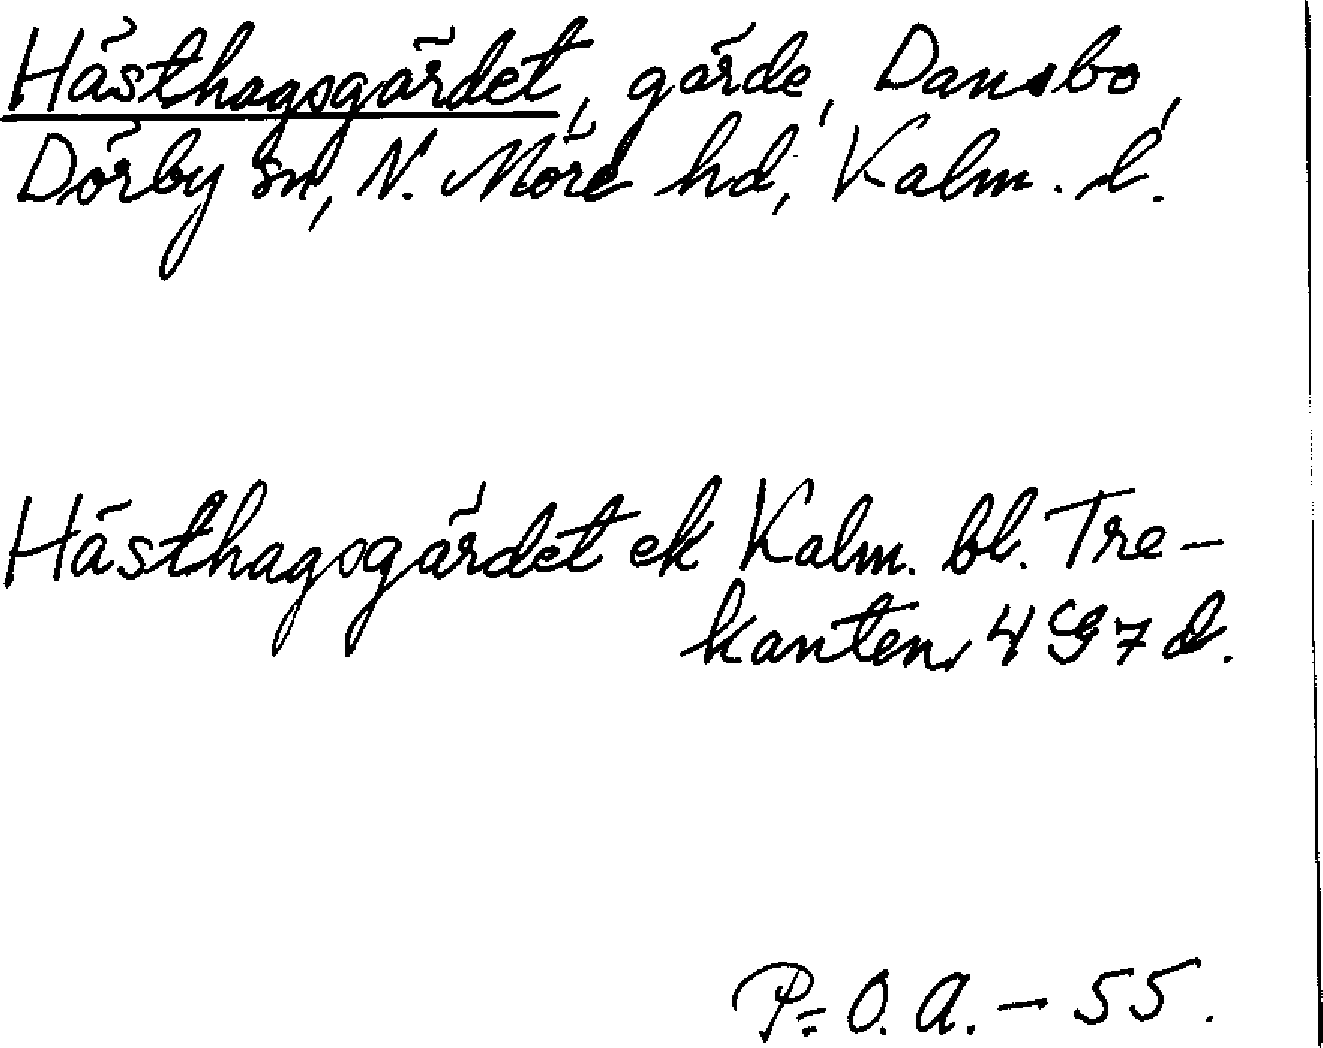 Hästhagsgärdet, gärde, Dansbo,
Dörby sn, N. Möre hd, Kalm. l.
Hästhagsgärdet ek Kalm. bl. Tre-
kanten, 4 G 7 d.
P-O. A. - 55.